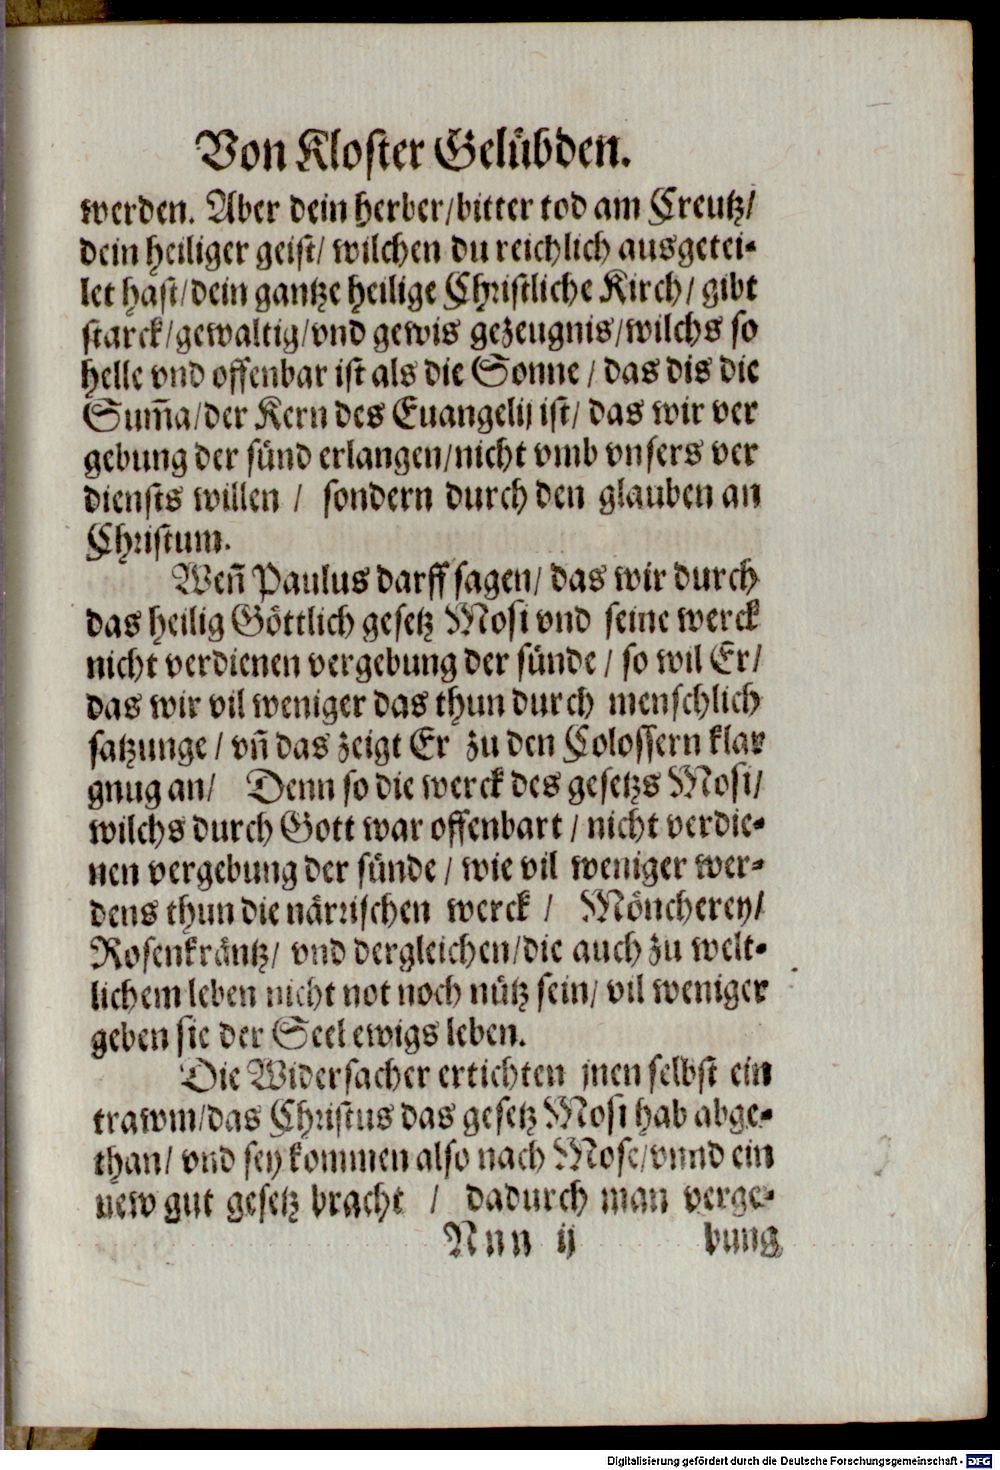 Von Kloster Gelübden.
werden. Aber dein herber/bitter tod am Creutz/
dein heiliger geist/ wilchen du reichlich ausgetei-
let hast/dein gantze heilige Christliche Kirch/ gibt
starck/gewaltig/vnd gewis gezeugnis/wilchs so
helle vnd offenbar ist als die Sonne / das dis die
Sum̃a/der Kern des Euangelij ist/ das wir ver
gebung der sünd erlangen/nicht vmb vnsers ver
diensts willen / sondern durch den glauben an
Christum.
Weñ Paulus darff sagen/ das wir durch
das heilig Göttlich gesetz Mosi vnd seine werck
nicht verdienen vergebung der sünde / so wil Er/
das wir vil weniger das thun durch menschlich
satzunge / vñ das zeigt Er zu den Colossern klar
gnug an/ Denn so die werck des gesetzs Mosi/
wilchs durch Gott war offenbart / nicht verdie-
nen vergebung der sünde / wie vil weniger wer-
dens thun die närrischen werck / Möncherey/
Rosenkräntz/ vnd dergleichen/die auch zu welt-
lichem leben nicht not noch nütz sein/ vil weniger
geben sie der Seel ewigs leben.
Die Widersacher ertichten jnen selbst ein
trawm/das Christus das gesetz Mosi hab abge-
than/ vnd sey kommen also nach Mose/vnnd ein
new gut gesetz bracht / dadurch man verge-
Nnn ij bung
Digitalisierung gefördert durch die Deutsche Forschungsgemeinschaft - DFG